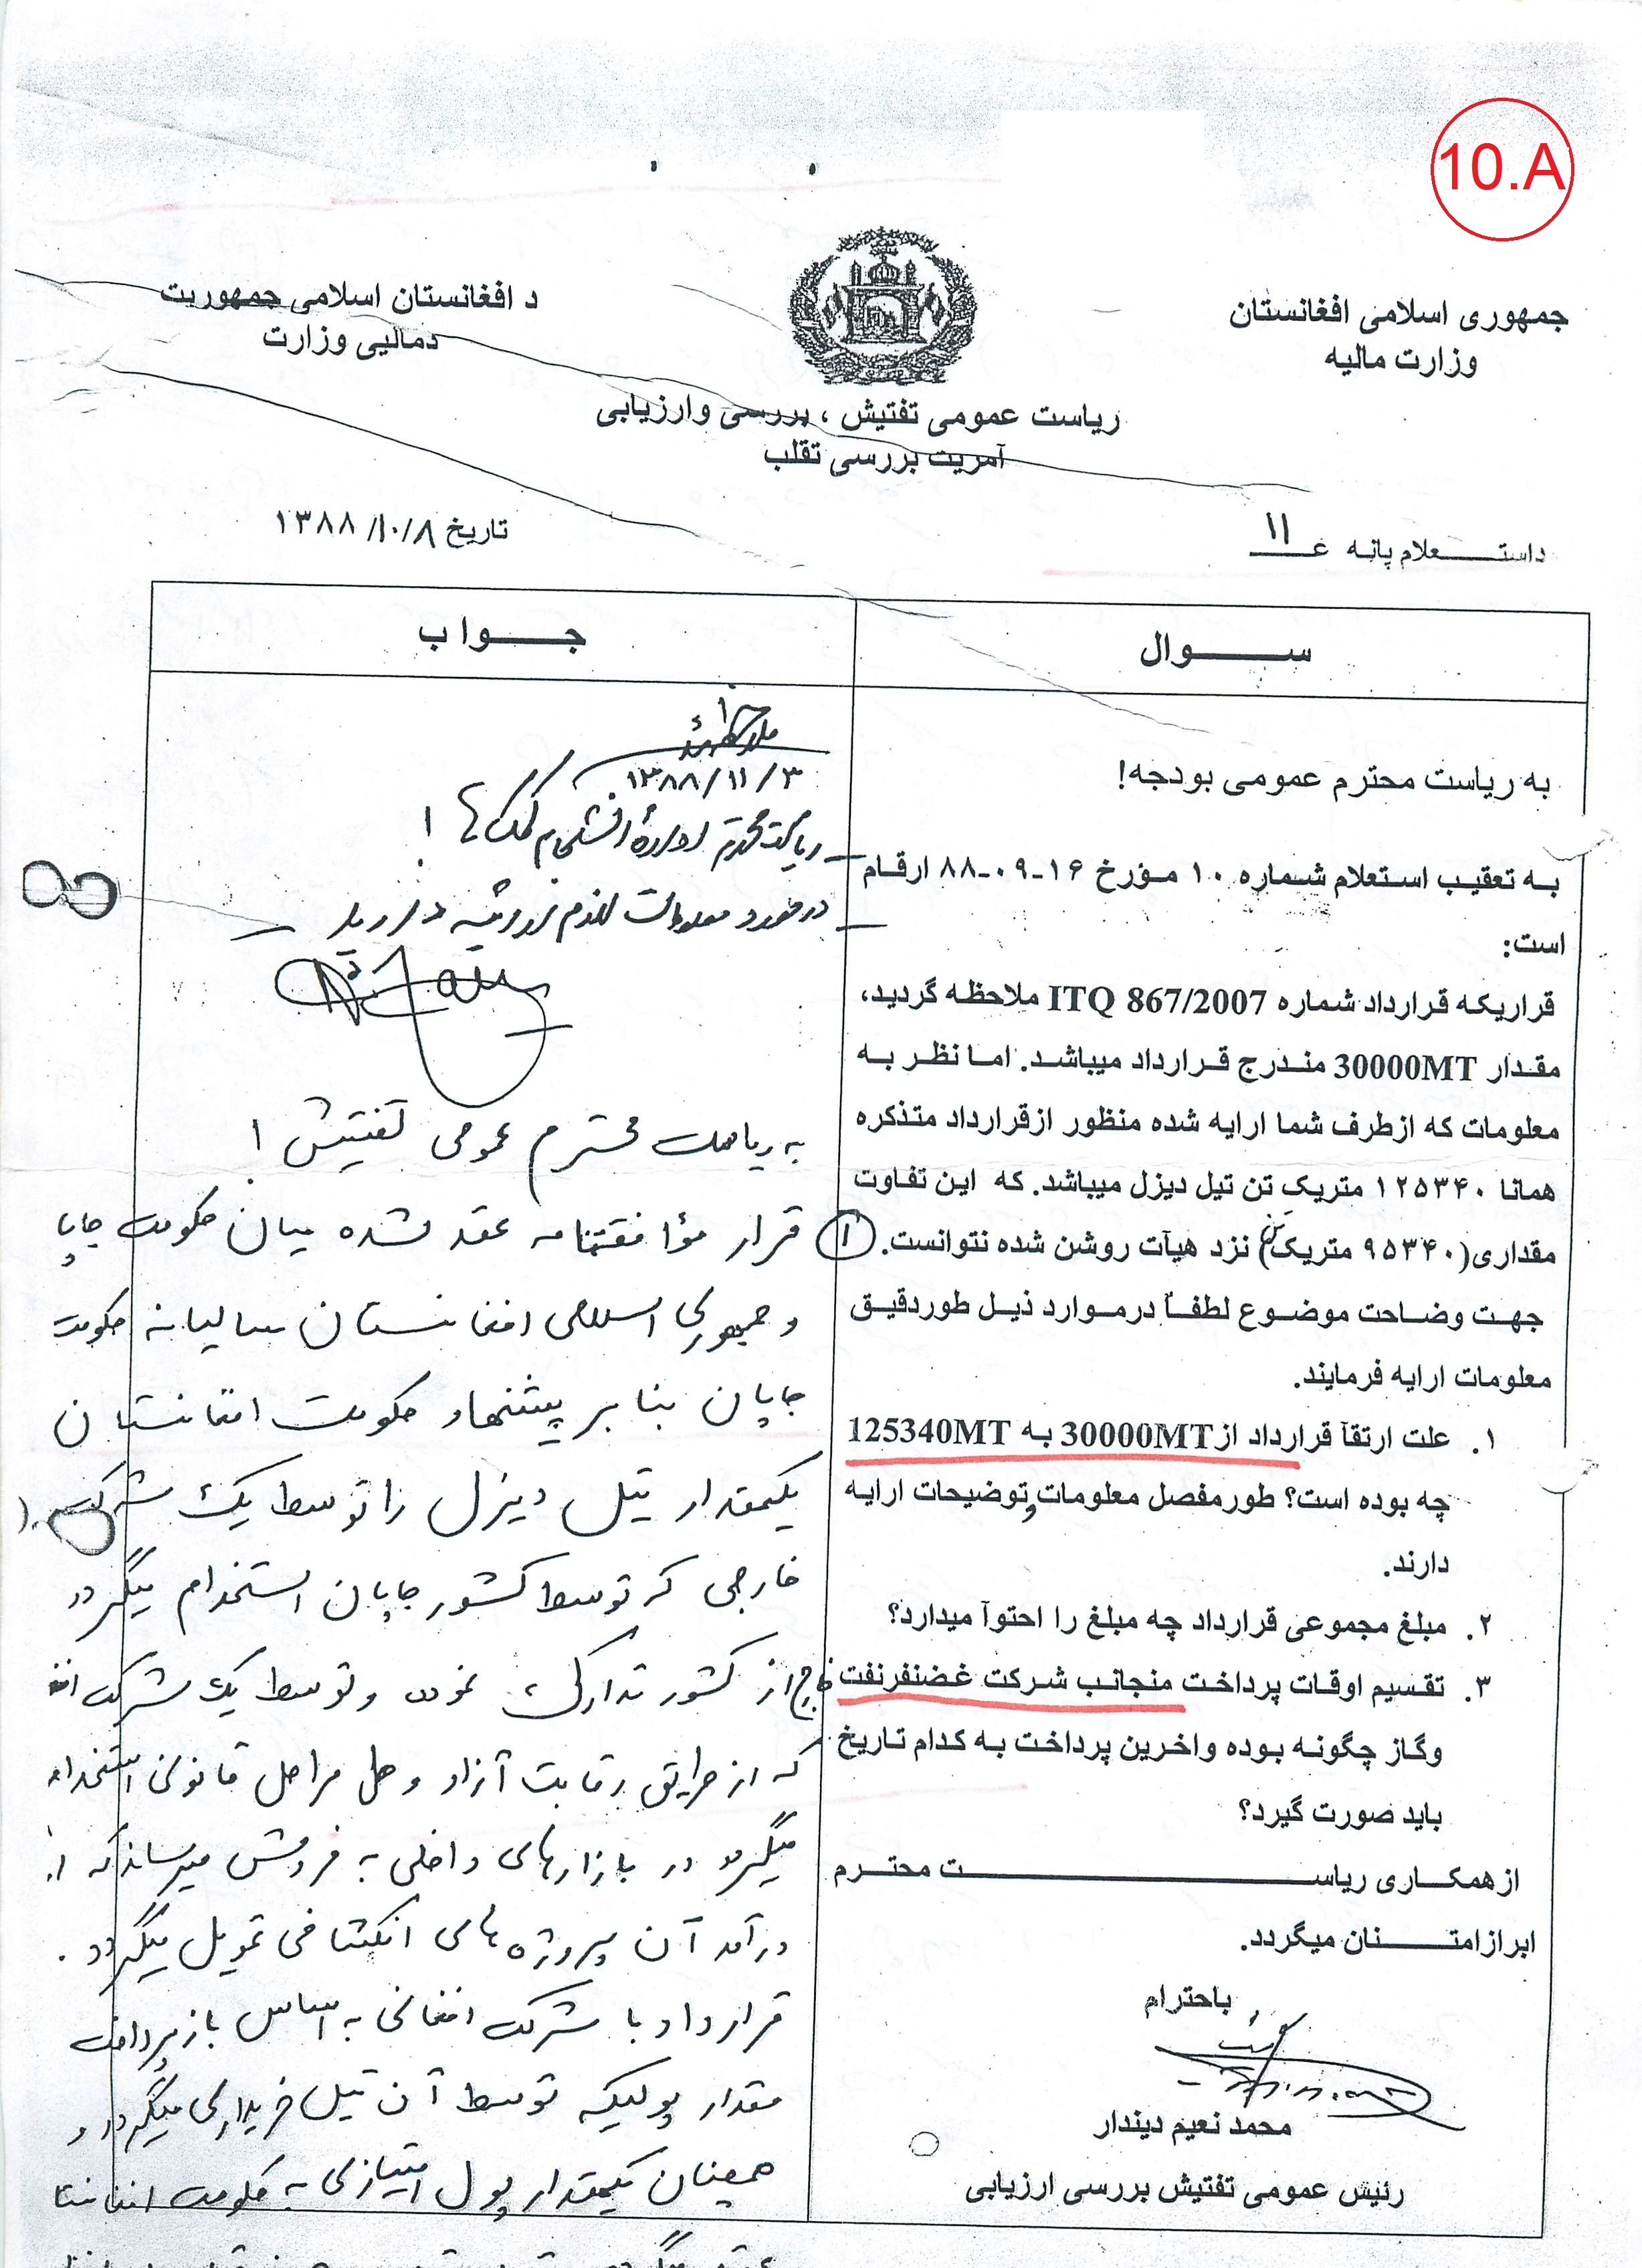 10.A
جمهوری اسلامی افغانستان
وزارت مالیه
د افغانستان اسلامی جمهوریت
دمالیی وزارت
ریاست عمومی تفتیش ، بررسی وارزیابی
آمریت بررسی تقلب
داستعلام پانه ع ۱۱
تاریخ ۱۳۸۸/۱۰/۸
ســوال
به ریاست محترم عمومی بودجه!
به تعقیب استعلام شماره ۱۰ مؤرخ ۱۶-۰۹-۸۸ ارقام
است:
قراریکه قرارداد شماره ITQ 867/2007 ملاحظه گردید،
مقدار 30000MT مندرج قرارداد میباشد. اما نظر به
معلومات که ازطرف شما ارایه شده منظور ازقرارداد متذکره
همانا ۱۲۵۳۴۰ متریک تن تیل دیزل میباشد. که این تفاوت
مقداری(۹۵۳۴۰ متریک تن) نزد هیآت روشن شده نتوانست.
جهت وضاحت موضوع لطفاً درموارد ذیل طوردقیق
معلومات ارایه فرمایند.
۱. علت ارتقآ قرارداد از 30000MT به 125340MT
چه بوده است؟ طورمفصل معلومات وتوضیحات ارایه
دارند.
۲. مبلغ مجموعی قرارداد چه مبلغ را احتوآ میدارد؟
۳. تقسیم اوقات پرداخت منجانب شرکت غضنفرنفت
وگاز چگونه بوده واخرین پرداخت به کدام تاریخ
باید صورت گیرد؟
ازهمکاری ریاست محترم
ابرازامتنان میگردد.
باحترام
محمد نعیم دیندار
رئیس عمومی تفتیش بررسی ارزیابی
جــواب
ملاحظه شد
۱۳۸۸/۱۱/۳
ریاست محترم اداره انسجام کمک ها !
درمورد معلومات لازم
به ریاست محترم عمومی تفتیش !
۱ قرار مؤافقتنامه عقد شده میان حکومت جاپا
و جمهوری اسلامی افغانستان سالیانه حکومت
جاپان بنا بر پیشنهاد حکومت افغانستان
یکمقدار تیل دیزل را توسط یک شرکت
خارجی که توسط کشور جاپان استخدام میگردد
خارج از کشور تدارک نموده و توسط یک شرکت
که از طریق رقابت آزاد و طی مراحل قانونی استخدام
میگردد در بازارهای داخلی به فروش میرساند که از
درآمد آن پروژه های انکشافی تمویل میگردد .
قرارداد با شرکت افغانی به اساس بازپرداخت
مقدار پولیکه توسط آن تیل خریداری میگردد و
همچنان یکمقدار پول امتیازی به حکومت